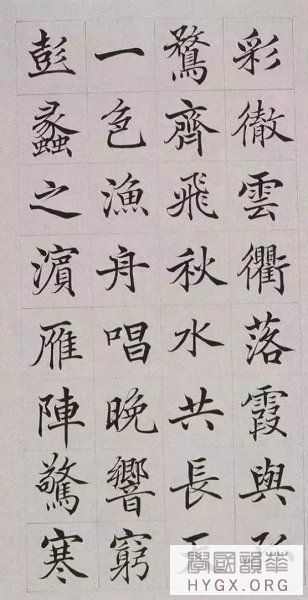 彩徹雲衢落霞與
鶩齊飛秋水共長
一色漁舟唱晚響窮
彭蠡之濱雁陣驚寒
華韻國學
HYGX.ORG